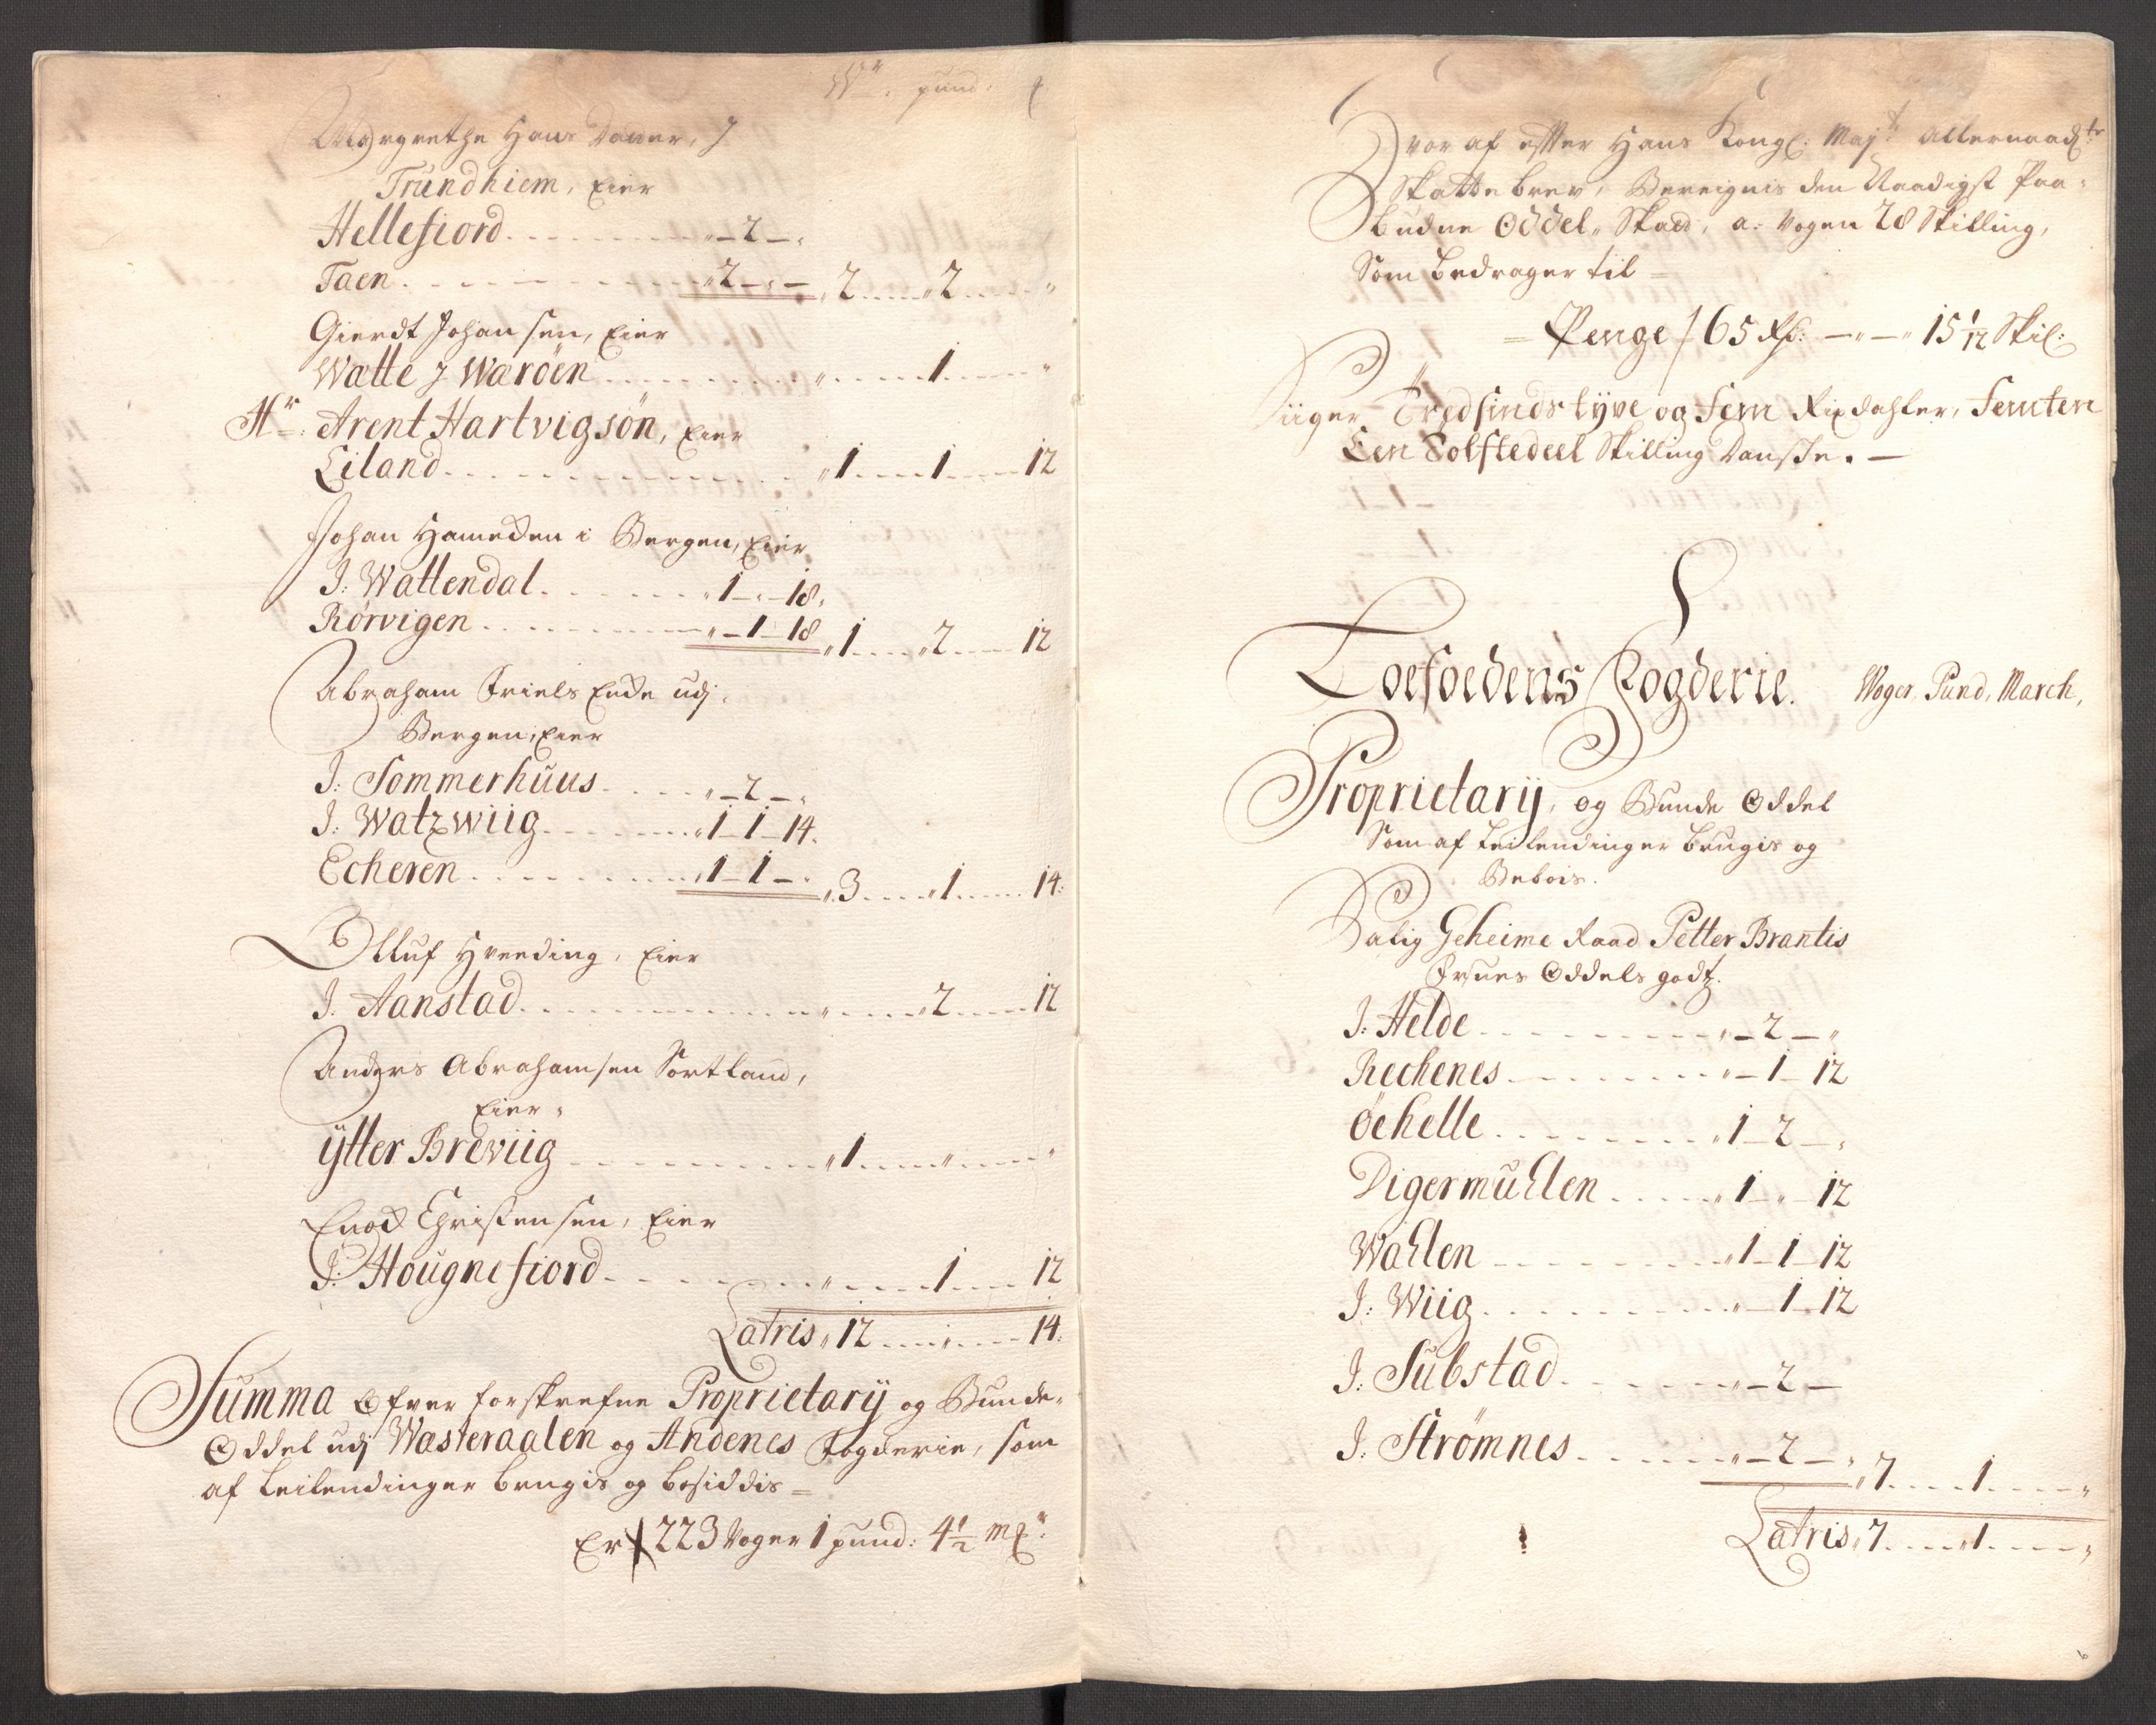 Wr. pund.
Margrethe Hans Daaer, J
Trundhiem, Eier
Hellefiord - 2 -
Taen 2 - - 2 2
Gierdt Johansen, Eier
Watte J Wæröen 1
Hr: Arent Hartvigsön, Eier
Eiland 1 1 12
Johan Hamecken i Bergen, Eier
J: Wattendal 1 - 18
Rörvigen - 1 - 18 1 2 12
Abraham Friels Encke udj
Bergen, Eier
J: Sommerhuus - 2 -
J: Watzwiig 1 - 1 - 14
Echeren 1 - 1 - 3 1 14
Olluf Hveding, Eier
J. Aanstad 2 12
Anders Abrahamsen Sortland,
Eier
ÿtter Breviig 1
Enock Christensen, Eier
J: Hougnefiord 1 12
Latris 12 14
Summa Ofver forskrefne Proprietarij og Bunde-
Oddel udj Wasteraalen og Andenes Fogderie, som
af Leilendinger brugis og besiddis =
Er / 223 Voger 1 pund: 4 1/2 mk
Hvor af efter Hans Kongl: Mayts Allernaadte
Skattebrev, Bereignis den Naadigst Paa-
budne Oddel Skad, a: Vogen 28 Skilling,
Som bedrager til =
= Penge / 65 Rd: - - 15 1/12 Skil:
Siiger Tredsindstÿve og fem Rixdahler, Femten
Een Tolftedeel Skilling Danske. -
Loefoedens Fogderie. Woger, Pund, March,
Proprietarij, og Bunde Oddel
Som af Leilendinger brugis og
Bebois.
Salig Geheime Raad Petter Brantis
Frues Oddels godtz.
J: Helde - 2 -
Rechenes - 1 - 12
öehelle 1 - 2 -
Digermuhlen 1 - 12
Wahlen 1 - 1 - 12
J: Wiig - 1 - 12
J: Substad - 2 -
J: Strömnes - 2 - 7 1
Latris 7 1
6